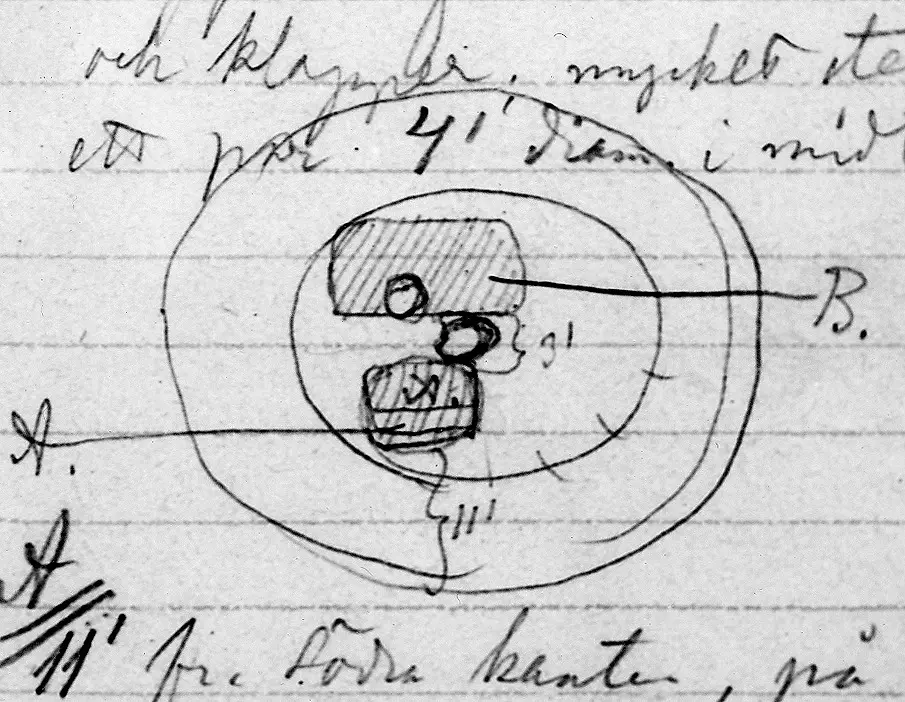 och klapper, mycket ste
ett par. 41' diam. i mid
B.
3'
A.
A.
11'
A
11' fr. södra kanten, på